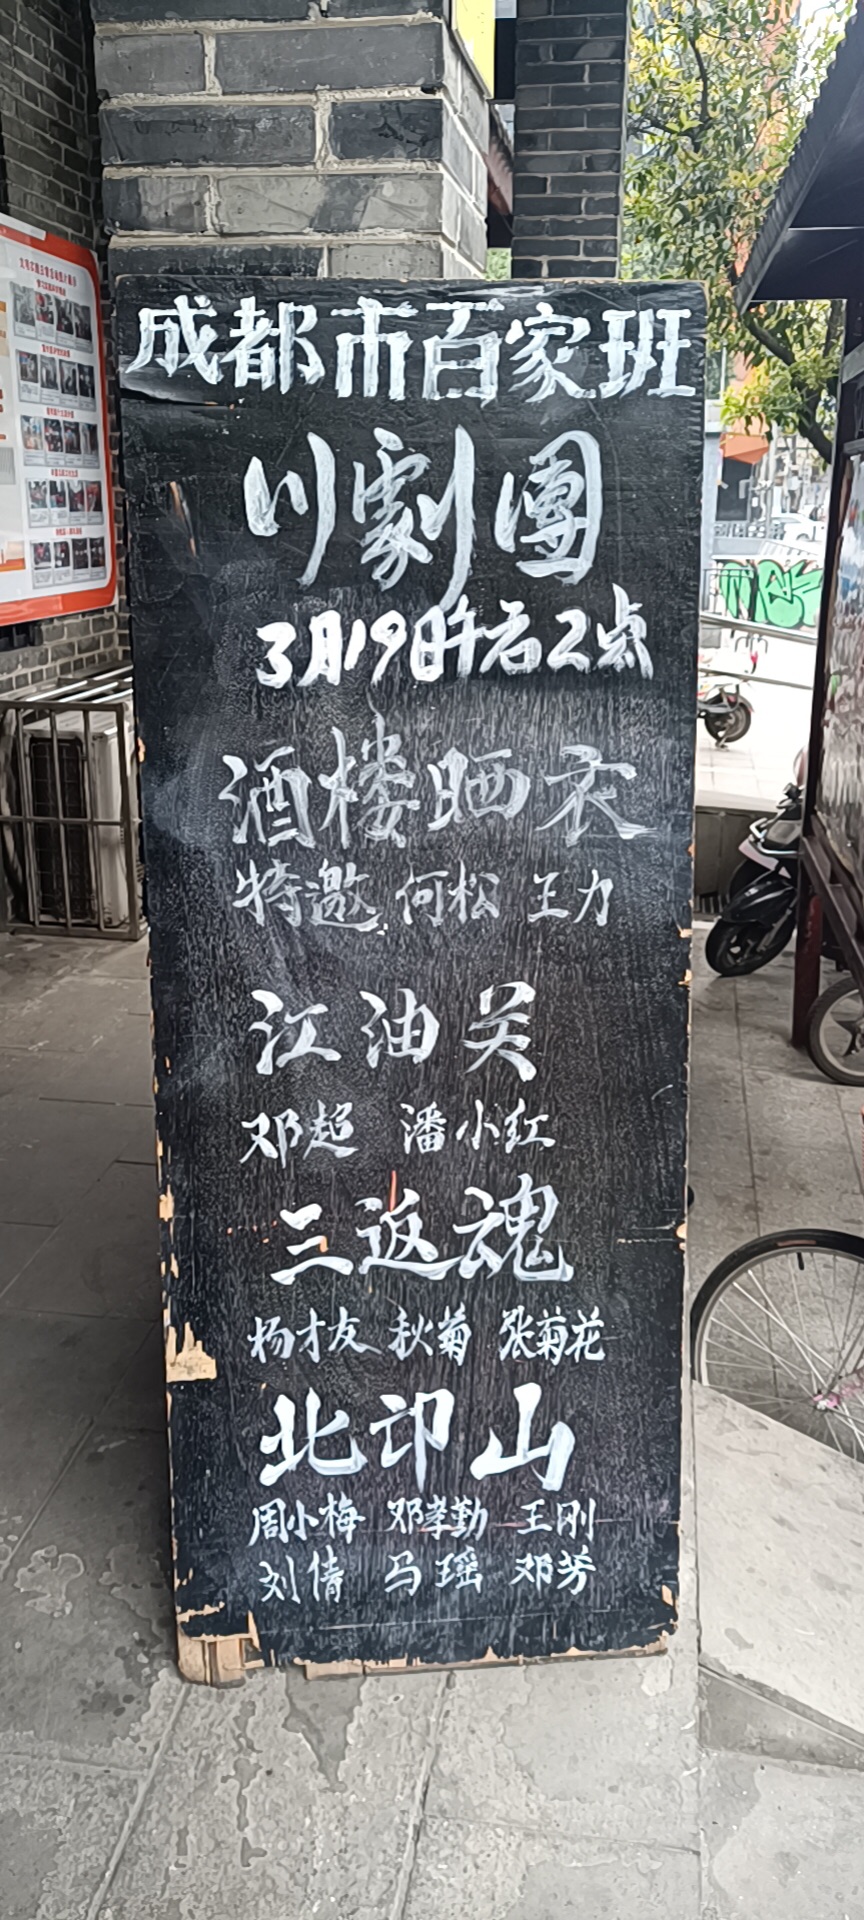 成都市百家班
川劇團
3月19日午后2点
酒楼晒衣
特邀 何松 王力
江油关
邓超 潘小红
三返魂
杨才友 秋菊 张菊花
北邙山
周小梅 邓孝勤 王刚
刘倩 马瑶 邓芳